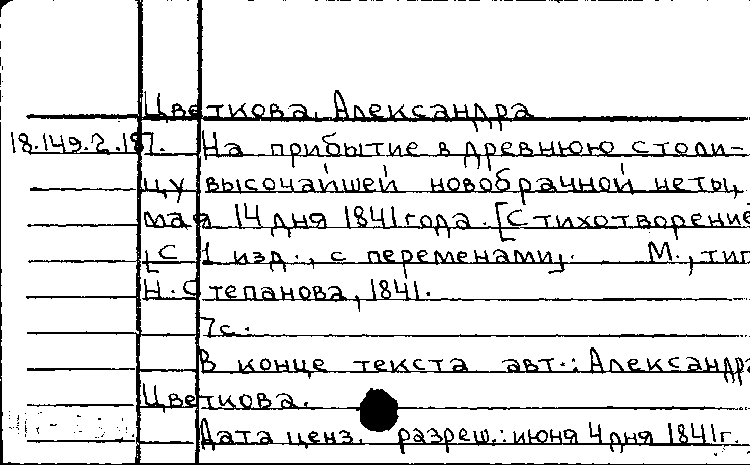 Цветкова, Александра
18.149.2.187. На прибытие в древнюю столи-
цу высочайшей новобрачной четы,
мая 14 дня 1841 года. [Стихотворение]
[С 1 изд., с переменами]. М., тип
Н. Степанова, 1841.
7с.
В конце текста авт.: Александра
Цветкова.
Дата ценз. разреш.: июня 4 дня 1841г.